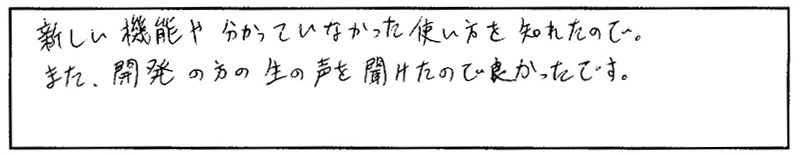 新しい機能や分かっていなかった使い方を知れたので。
また、開発の方の生の声を聞けたので良かったです。